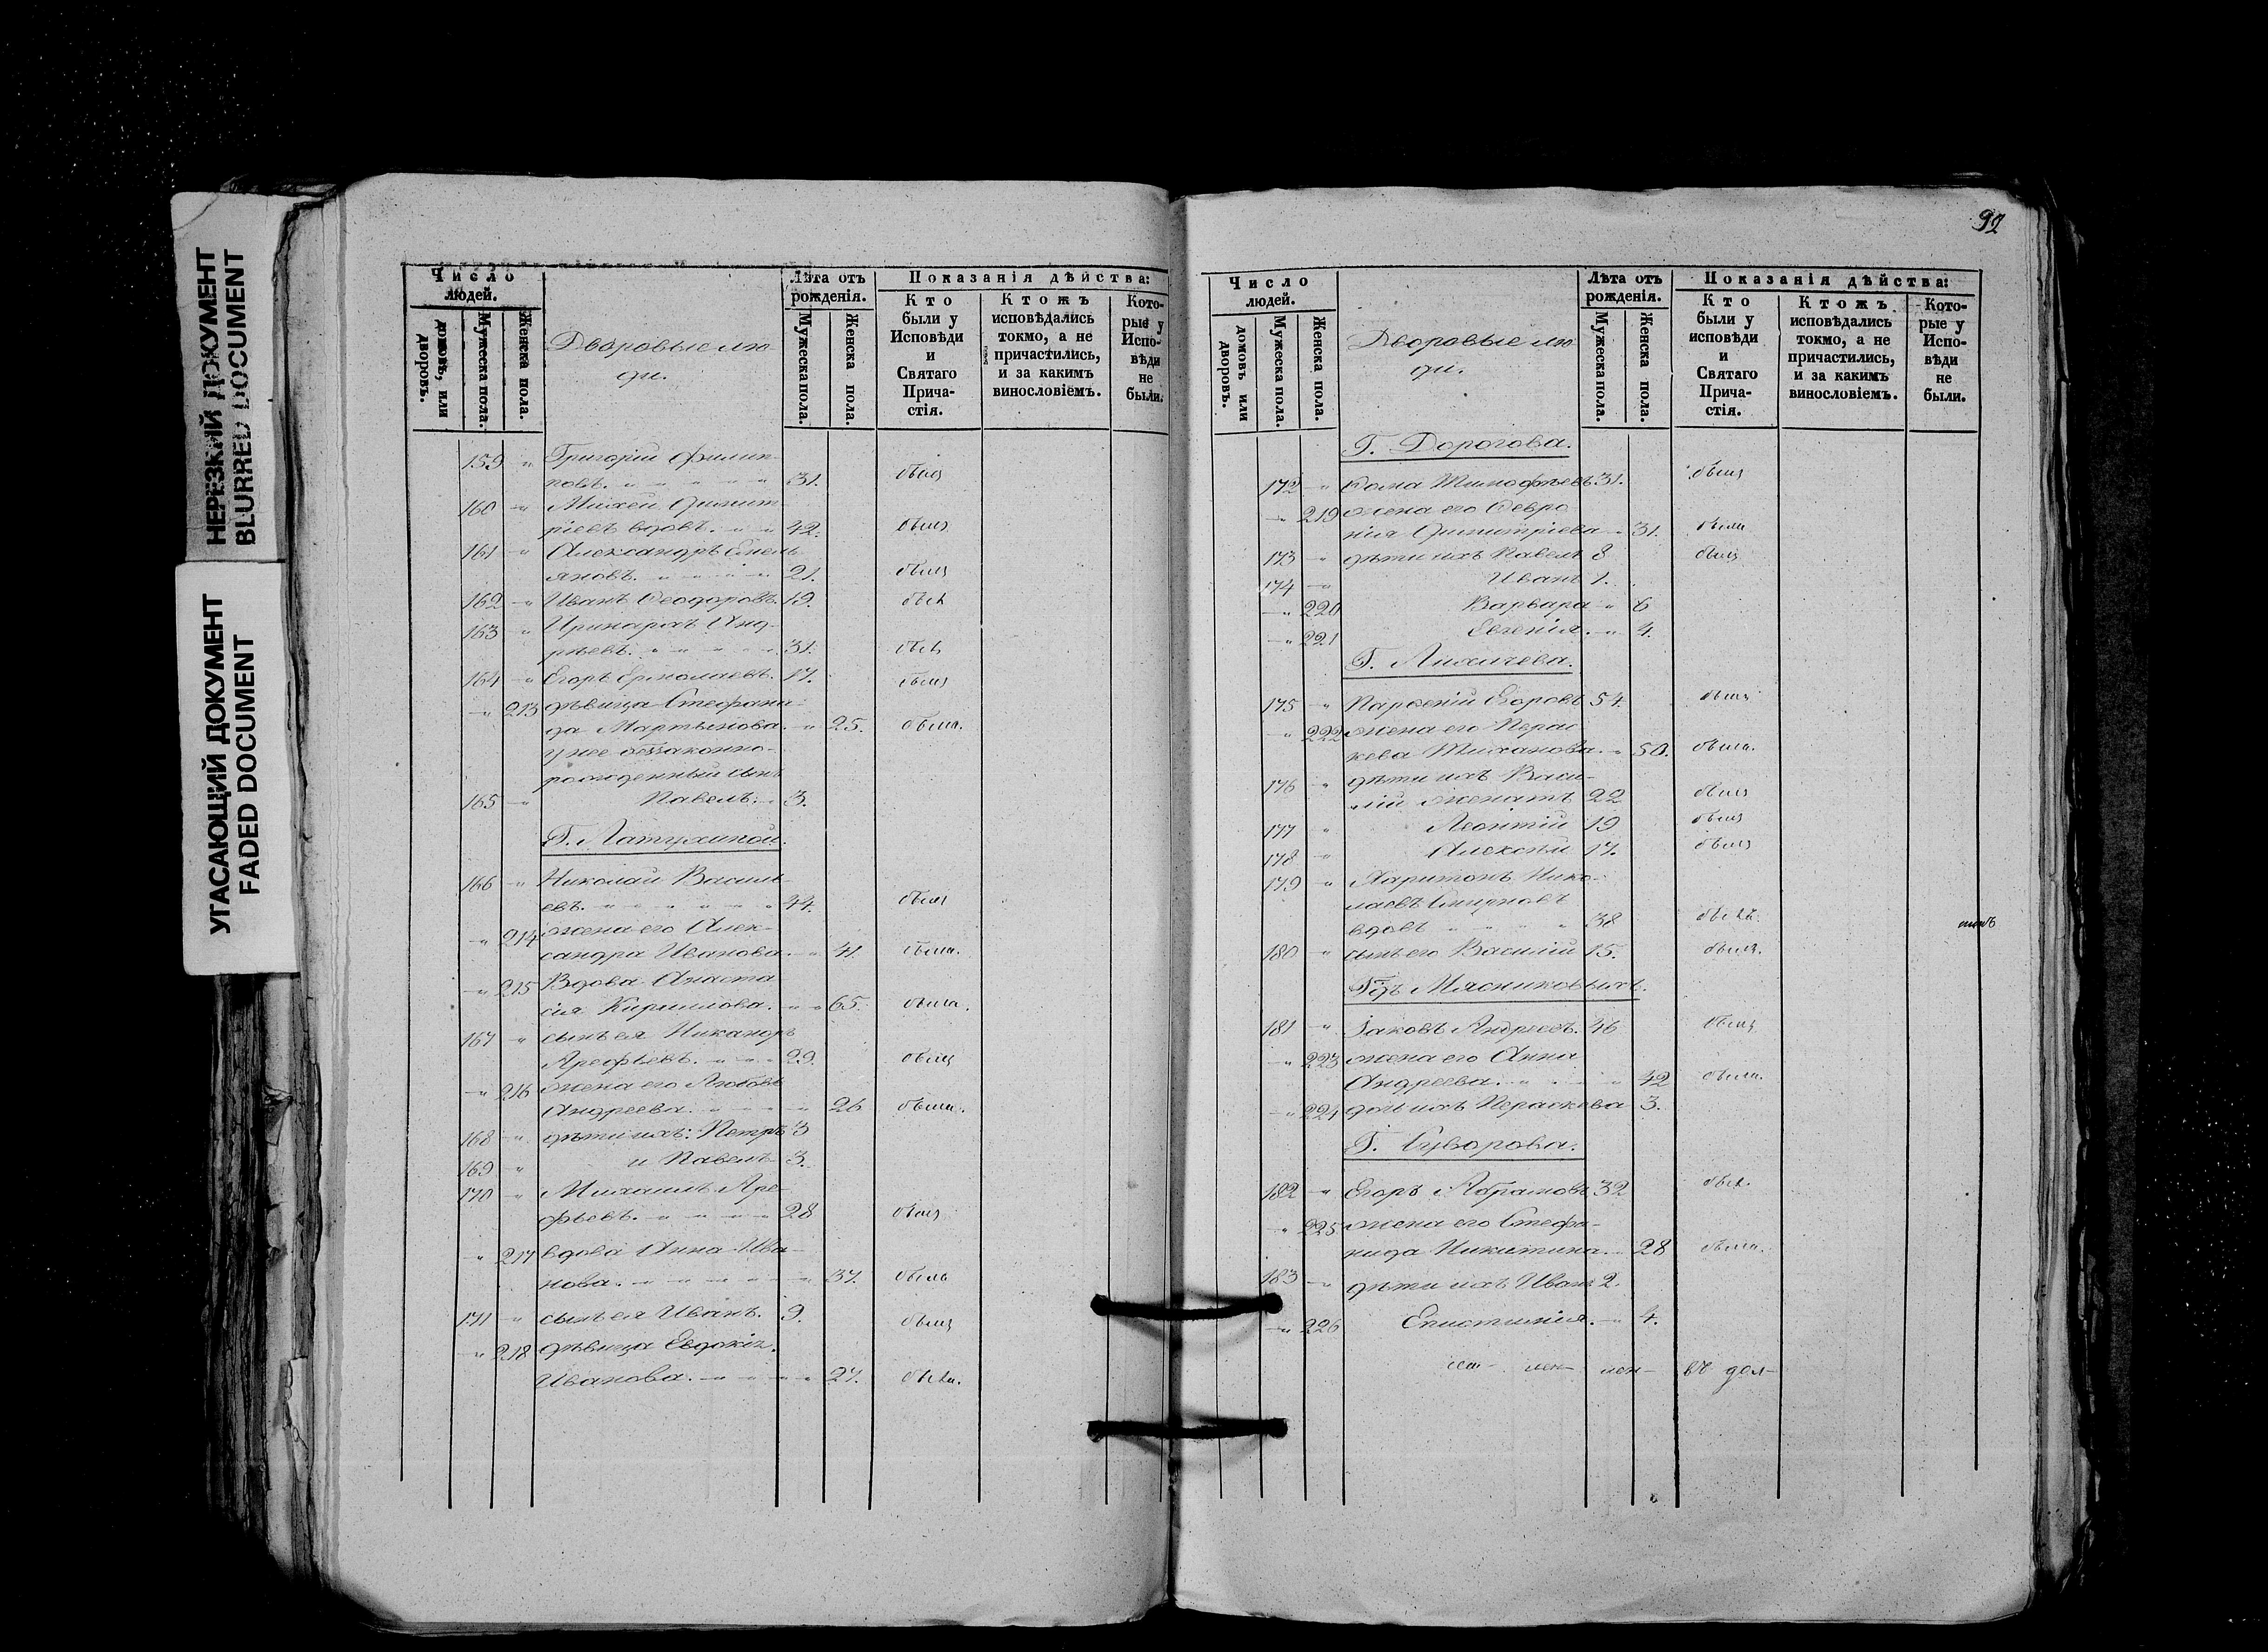 92
НЕРЕЗКИЙ ДОКУМЕНТ
BLURRED DOCUMENT
УГАСАЮЩИЙ ДОКУМЕНТ
FADED DOCUMENT
Число людей.
домовъ, или дворовъ.
Мужеска пола.
Женска пола.
Дворовые лю
ди.
Лѣта отъ рожденія.
Мужеска пола.
Женска пола.
Показанія дѣйства:
Кто были у Исповѣди и Святаго Прича-стія.
Ктожъ исповѣдались токмо, а не причастились, и за какимъ винословіемъ.
Кото-рые у Испо-вѣди не были.
159 " Григорій Филип-
повъ. 31. былъ
160 " Михей Димит
ріевъ вдовъ. 42. былъ
161 " Александръ Емель
яновъ. 21. былъ
162 " Иванъ Ѳеодоровъ. 19. былъ
163 " Иринархъ Анд-
реевъ. 31. былъ
164 " Егоръ Ермолаевъ. 17. былъ
" 213 дѣвица Стефани-
да Мартынова. 25. была.
у нее беззаконно-
рожденный сынъ
165 " Павелъ. 3.
Г. Латухиной.
166 " Николай Василь-
евъ. 44. былъ
" 214 жена его Алек-
сандра Иванова. 41. была.
" 215 Вдова Анаста
сія Кирилова. 65. была.
167 " сынъ ея Никаноръ
Арефьевъ. 29. былъ
" 216 жена его Любовь
Андреева. 26 была.
168 " дѣти ихъ: Петръ 3
169 " и Павелъ 3.
170 " Михаилъ Аре-
фьевъ. 28 былъ
" 217 вдова Анна Ива-
нова. 37. была
171 " сынъ ея Иванъ. 9. былъ
" 218 дѣвица Евдокія
Иванова. 27. была.
Число людей.
домовъ или дворовъ.
Мужеска пола.
Женска пола.
Дворовые лю
ди.
Лѣта отъ рожденія.
Мужеска пола.
Женска пола.
Показанія дѣйства:
Кто были у исповѣди и Святаго Прича-стія.
Ктожъ исповѣдались токмо, а не причастились, и за какимъ винословіемъ.
Кото-рые у Испо-вѣди не были.
Г. Дорогова.
172 " Ѳома Тимофѣевъ 31. былъ
" 219 жена его Февро
нія Димитріева 31. была
173 " дѣти ихъ Павелъ 8 былъ
174 " Иванъ 1.
" 220 Варвара " 6
" 221 Евгенія. " 4.
Г. Лихачева.
175 " Парѳеній Егоровъ 54. былъ
" 222 жена его Парас
кева Тиханова. 50. была.
176 " дѣти ихъ Васи-
лій женатъ 22 былъ
177 " Леонтій 19 былъ
178 " Алексѣй 17. былъ
179 " Харитонъ Нико-
лаевъ Смирновъ
вдовъ 38 былъ.
180 " сынъ его Василій 15. былъ.
Гдъ Мясниковыхъ.
181 " Іаковъ Андреевъ. 46 былъ
" 223 жена его Анна
Андреева. 42 была.
" 224 дочь ихъ Параскева 3.
Г. Суворова.
182 " Егоръ Абрамовъ 32 былъ.
" 225 жена его Стефа-
нида Никитина. 28 была.
183 " дѣти ихъ Иванъ 2.
" 226 Епистимія. " 4.